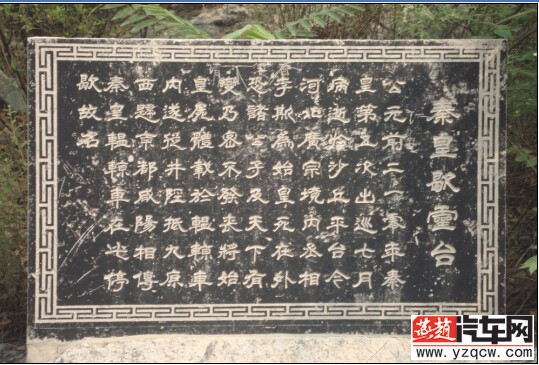 秦皇歇霊台
公元前二一零年秦
皇第五次出巡七月
病逝於沙丘平台今
河北廣宗境内丞相
李斯為始皇死在外
恐諸公子及天下有
變乃密不發丧將始
皇屍體載於轀輬車
内遂從井陘抵九原
西歸京都咸陽相傳
秦皇轀輬車在此停
歇故名
燕趙汽车网
www.yzqcw.com